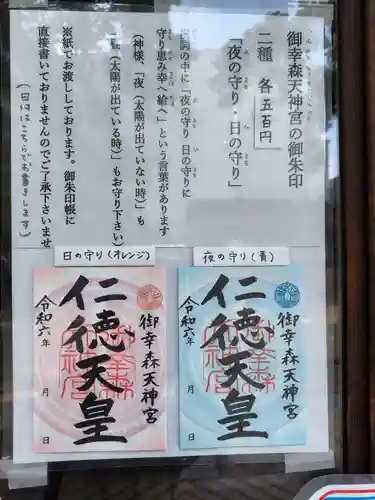 御幸森天神宮の御朱印
二種 各五百円
「夜の守り・日の守り」
の中に「夜の守り 日の守りに
守り恵み幸へ給へ」という言葉があります
(神様、「夜(太陽が出ていない時)」も
(太陽が出ている時)」もお守り下さい)
※紙でお渡ししております。御朱印帳に
直接書いておりませんのでご了承下さいませ
(日付はこちらでお書きします)
日の守り(オレンジ)
御幸森天神宮
仁徳天皇
令和六年 月 日
夜の守り(青)
御幸森天神宮
仁徳天皇
令和六年 月 日